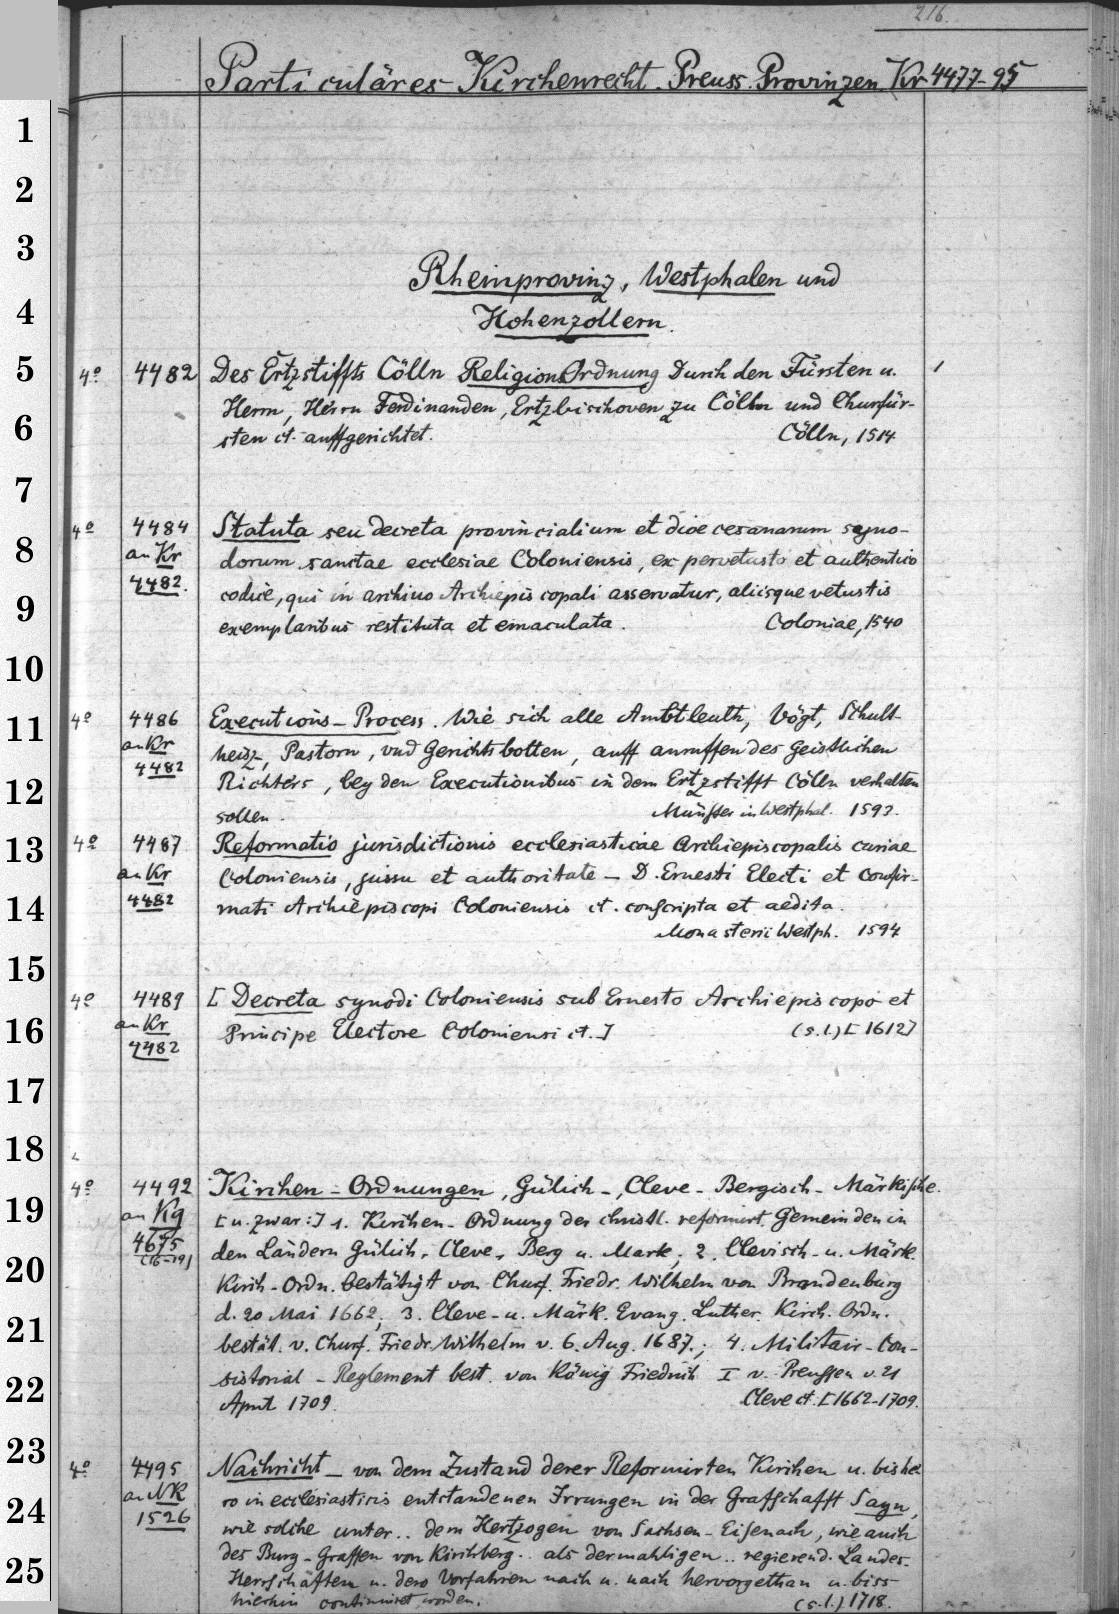 216.
Particuläres Kirchenrecht. Preuss. Provinzen. Kr 4477-95
Rheinprovinz, Westphalen und
Hohenzollern.
4º 4482 Des Ertzstiffts Cölln Religions Ordnung Durch den Fürsten u.
Herrn, Herrn Ferdinanden, Ertzbischoven zu Cölln und Churfür-
sten ct. auffgerichtet. Cölln, 1514
4º 4484 Statuta seu decreta provincialium et dioecesanarum syno-
an Kr dorum sanctae ecclesiae Coloniensis, ex pervetusto et authentico
4482. codice, qui in archivo Archiepiscopali asservatur, aliisque vetustis
exemplaribus restituta et emaculata. Coloniae, 1540
4º 4486 Executions-Process. Wie sich alle Ambtleuth, Vögt, Schult-
an Kr heisz, Pastorn, vnd Gerichtsbotten, auff anruffen des Geistlichen
4482 Richters, bey den Executionibus in dem Ertzstifft Cölln verhalten
sollen. Münster in Westphal. 1593.
4º 4487 Reformatio jurisdictionis ecclesiasticae Archiepiscopalis curiae
an Kr Coloniensis, jussu et authoritate - D. Ernesti Electi et confir-
4482 mati Archiepiscopi Coloniensis ct. conscripta et aedita.
Monasterii Westph. 1594
4º 4489 [Decreta synodi Coloniensis sub Ernesto Archiepiscopo et
an Kr Principe Electore Coloniensi ct.] (s.l.) [1612]
4482
4º 4492 Kirchen-Ordnungen, Gülich-, Cleve-Bergisch-Märkische.
an Kg [u. zwar:] 1. Kirchen-Ordnung der christl. reformirt. Gemeinden in
4675 den Ländern Gülich, Cleve, Berg u. Mark; 2. Clevisch-u. Märk.
(16-19) Kirch-Ordn. bestätigt von Churf. Friedr. Wilhelm von Brandenburg
d. 20 Mai 1662; 3. Cleve-u. Märk. Evang. Luther. Kirch. Ordn.
bestät. v. Churf. Friedr. Wilhelm v. 6. Aug. 1687.; 4. Militair-Con-
sistorial-Reglement best. von König Friedrich I v. Preussen v. 21
April 1709. Cleve ct. [1662-1709.
4º 4495 Nachricht - von dem Zustand derer Reformirten Kirchen u. bishe
an NR ro in ecclesiasticis entstandenen Irrungen in der Graffschafft Sayn,
1526 wie solche unter.. dem Hertzogen von Sachsen-Eisenach, wie auch
des Burg-Graffen von Kirchberg.. als dermahligen.. regierend. Landes-
Herrschäften u. dero Vorfahren nach u. nach hervorgethan u. biss
hierhin continuiret worden. (s.l.) 1718.
1
2
3
4
5
6
7
8
9
10
11
12
13
14
15
16
17
18
19
20
21
22
23
24
25